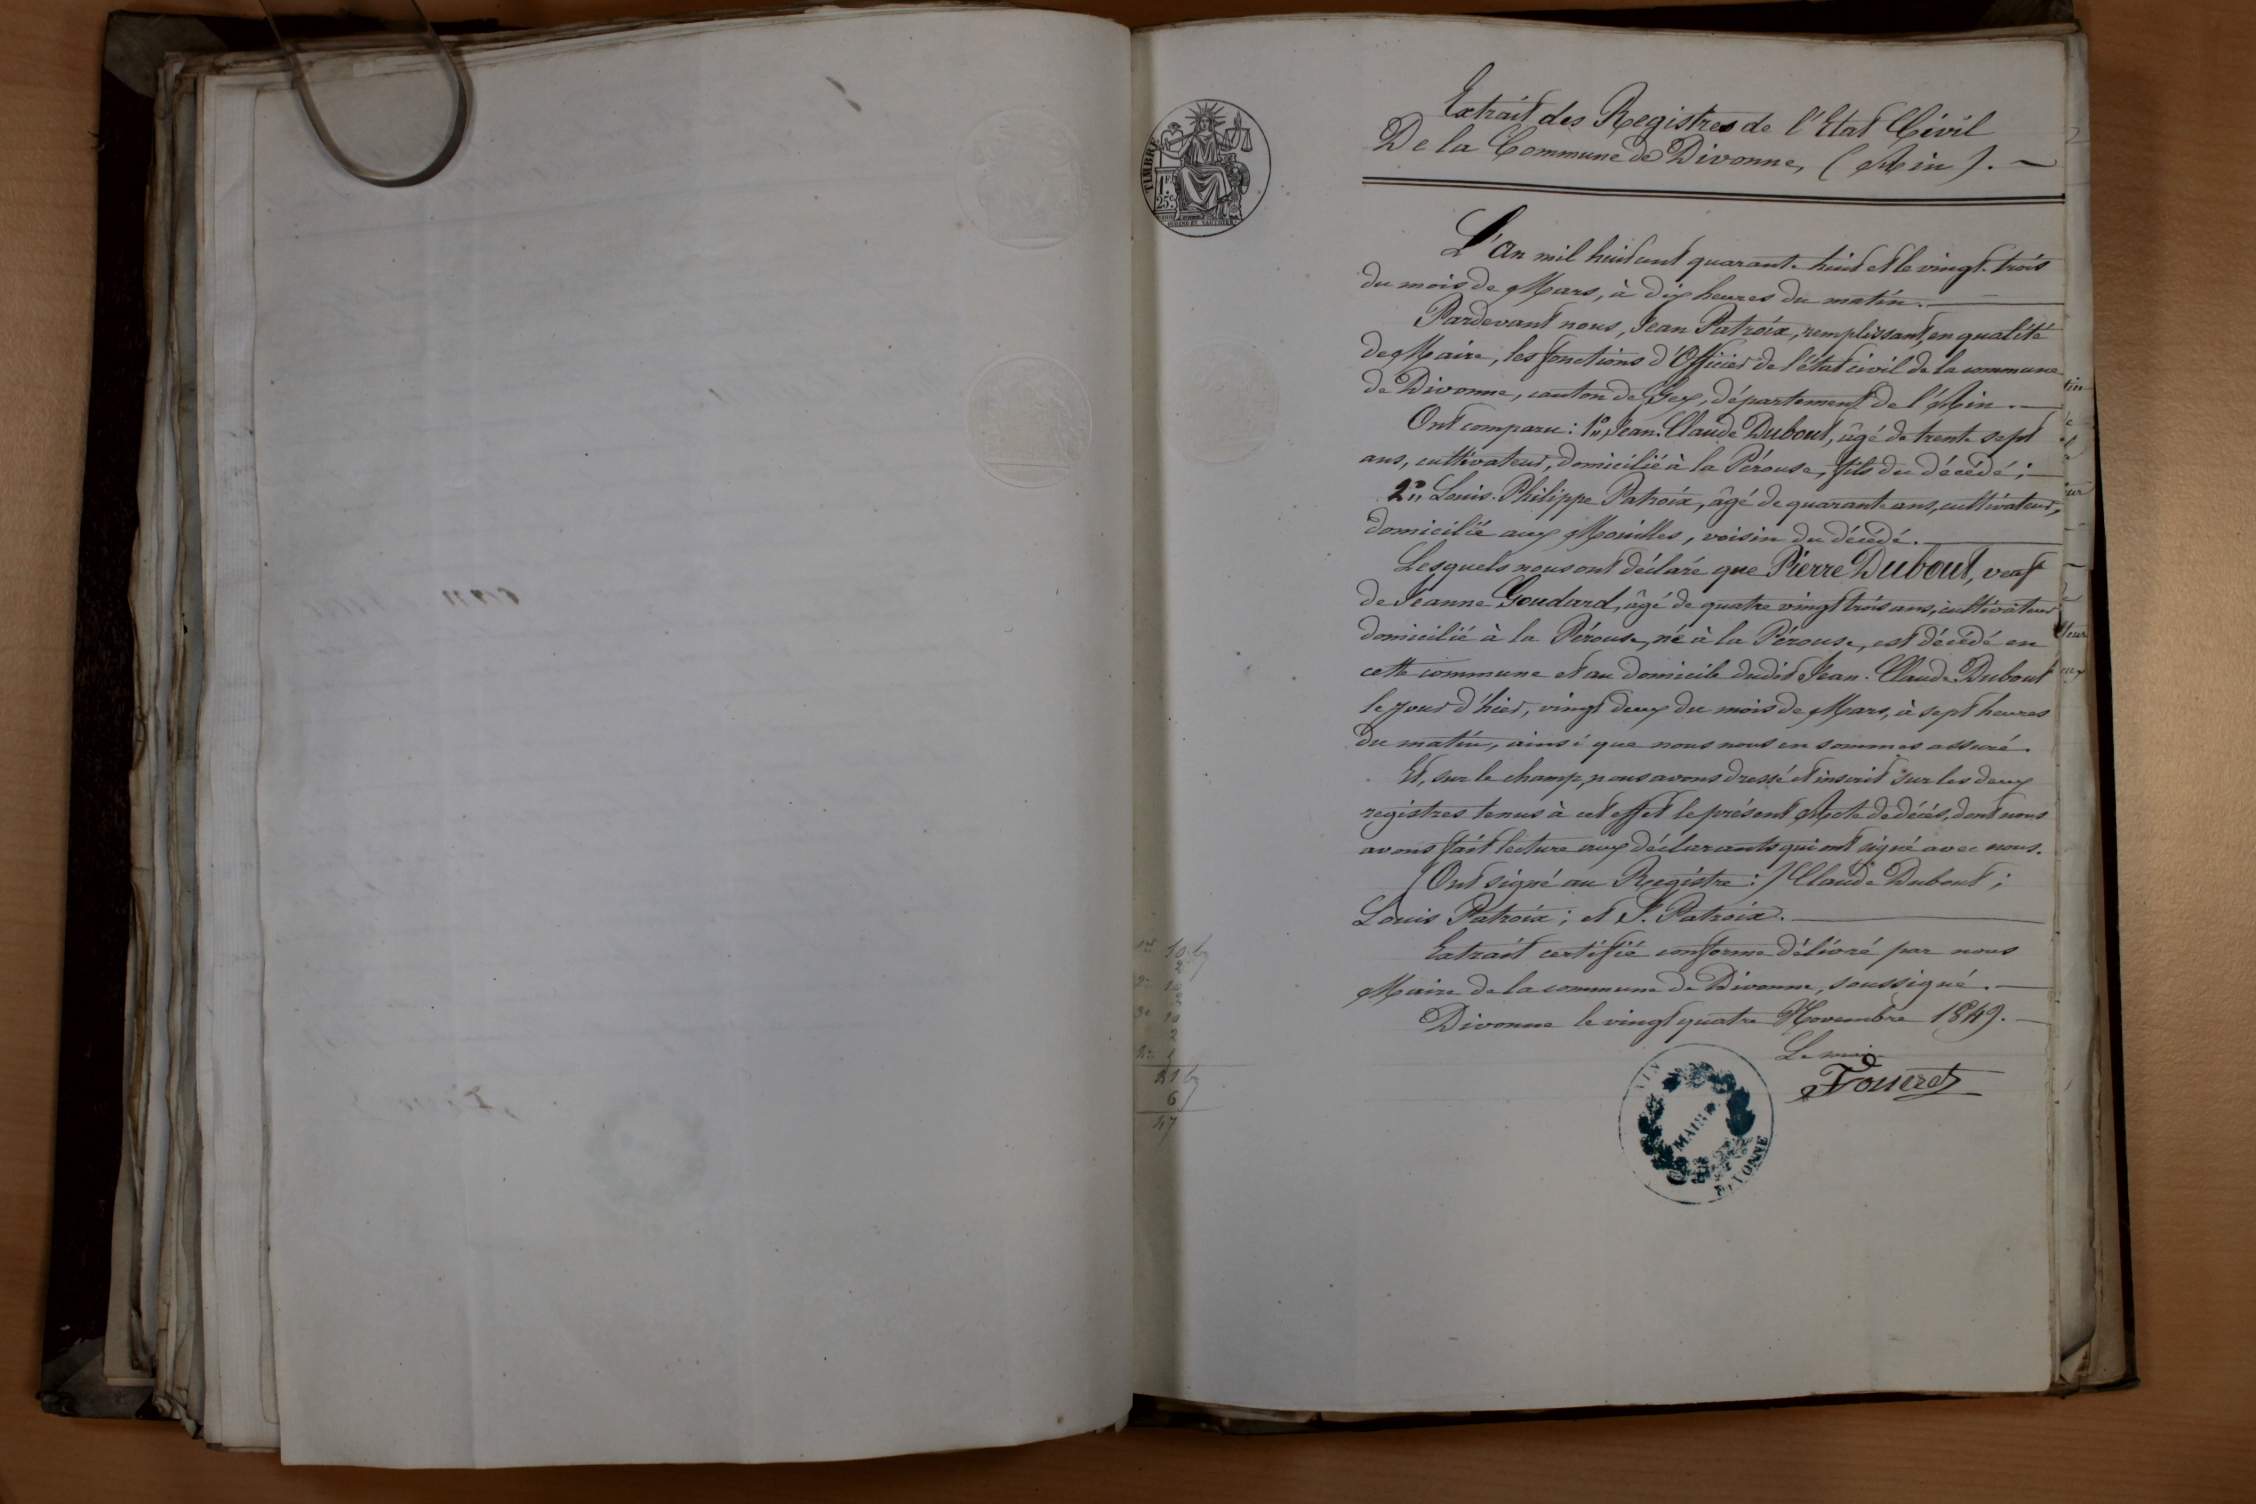 TIMBRE
1 F.
25 C.
Extrait des Registres de l'Etat Civil
De la Commune de Divonne, (Ain).
L'an mil huit cent quarante huit et le vingt-trois
du mois de Mars, à dix heures du matin.
Pardevant nous, Jean Patroix, remplissant, en qualité
de Maire, les fonctions d'Officier de l'état civil de la commune
de Divonne, canton de Gex, département de l'Ain.
Ont comparu: 1° Jean-Claude Dubout, âgé de trente sept
ans, cultivateur, domicilié à la Pérouse, fils du décédé;
2° Louis-Philippe Patroix, âgé de quarante ans, cultivateur,
domicilié aux Mouilles, voisin du décédé.
Lesquels nous ont déclaré que Pierre Dubout, veuf
de Jeanne Goudard, âgé de quatre vingt trois ans, cultivateur
domicilié à la Pérouse, né à la Pérouse, est décédé en
cette commune et au domicile dudit Jean-Claude Dubout
le jour d'hier, vingt deux du mois de Mars, à sept heures
du matin, ainsi que nous nous en sommes assuré.
Et, sur le champ, nous avons dressé et inscrit sur les deux
registres tenus à cet effet le présent Acte de décès, dont nous
avons fait lecture aux déclarants qui ont signé avec nous.
(Ont signé au Registre:) Claude Dubout;
Louis Patroix; et J. Patroix.
Extrait certifié conforme délivré par nous
Maire de la commune de Divonne, soussigné.
Divonne le vingt quatre Novembre 1849.
Le maire
MAIRIE
DIVONNE